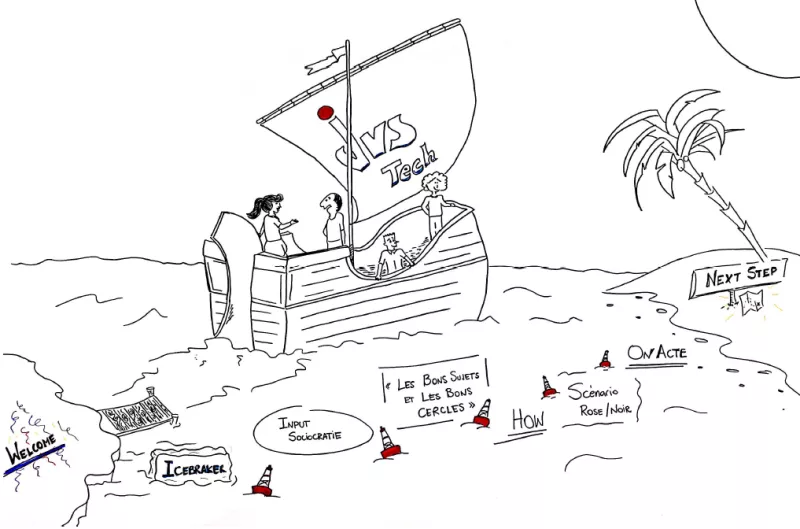 JVS
Tech
NEXT STEP
ON ACTE
« LES BONS SUJETS
ET LES BONS
CERCLES »
SCÉNARIO
ROSE/NOIR
HOW
INPUT
SOCIOCRATIE
WELCOME
ICEBRAKER